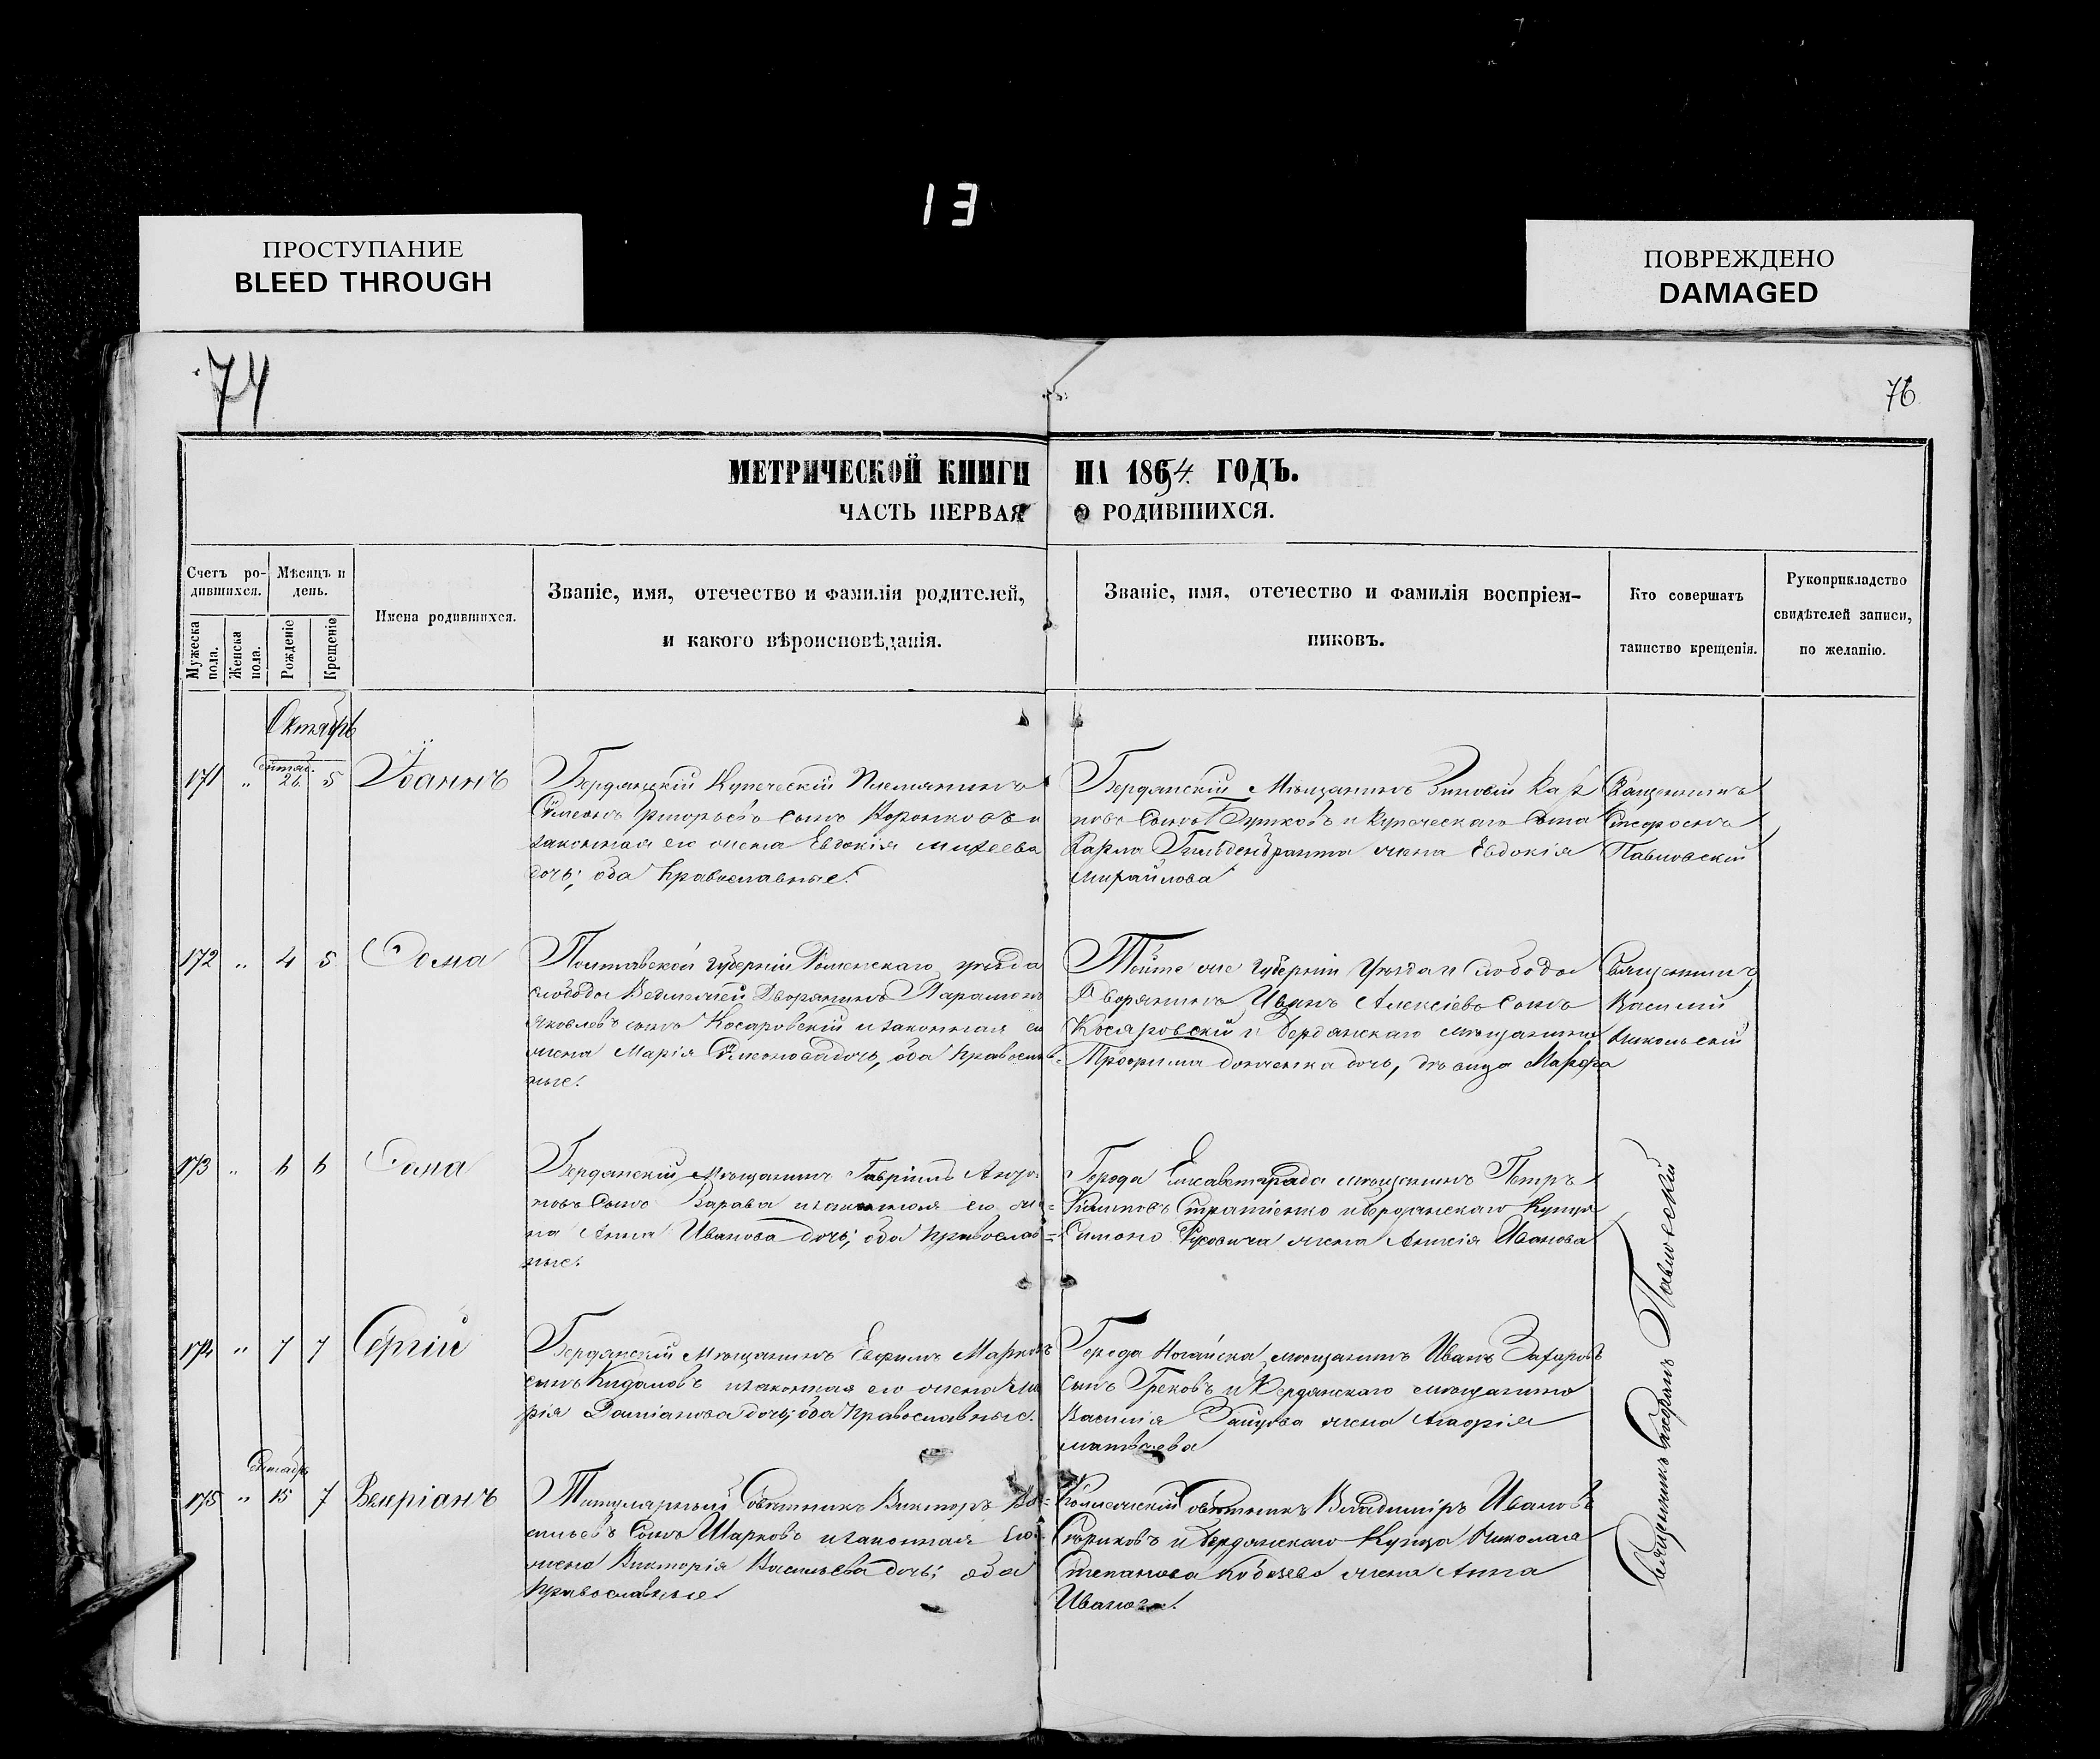 13
ПРОСТУПАНИЕ
BLEED THROUGH
ПОВРЕЖДЕНО
DAMAGED
74
76
МЕТРИЧЕСКОЙ КНИГИ НА 1864 ГОДЪ.
ЧАСТЬ ПЕРВАЯ О РОДИВШИХСЯ.
Счетъ ро-
дившихся.
Мѣсяцъ и
день.
Мужеска пола.
Женска пола.
Рожденіе
Крещеніе
Имена родившихся.
Званіе, имя, отечество и фамилія родителей,
и какого вѣроисповѣданія.
Званіе, имя, отечество и фамилія воспріем-
никовъ.
Кто совершатъ
таинство крещенія.
Рукоприкладство
свидѣтелей записи,
по желанію.
Октябрь
171 " 26 5 Іоаннъ
Бердянскій Купеческій Племянникъ
Сѵмеонъ Григорьевъ сынъ Коронковъ и
законная его жена Евдокія Михеева
дочь; оба Православные.
Бердянскій Мѣщанинъ Зиновій Кар
повъ сынъ и Купеческаго сына
Карла Гильденбранта жена Евдокія
Михайлова
Священникъ
Павловскій
172 " 4 5 Ѳома
Полтавской Губерніи Роменскаго уѣзда
слободы Дворянинъ Парамонъ
Яковлевъ сынъ Косаровскій и законная его
жена Марія Сѵмеонова дочь, оба Православ-
ные.
Той же Губерніи Уѣзда и слободы
Дворянинъ Иванъ Алексіевъ сынъ
Косаровскій и Бердянскаго мѣщанина
Трофима дочь, дѣвица Марфа
Священникъ
Василій
Никольскій
173 " 6 6 Ѳома
Бердянскій Мѣщанинъ Гавріилъ
новъ сынъ Варава и законная его же-
на Анна Иванова дочь; оба Православ-
ные.
Города Елисаветграда мѣщанинъ Петръ
и Бердянскаго Купца
Симона жена Иванова
174 " 7 7 Сергій
Бердянскій Мѣщанинъ Евфимъ Марковъ
сынъ и законная его жена Ма
рія Даміанова дочь; оба Православные.
Города Ногайска мѣщанинъ Иванъ Захаровъ
сынъ Грековъ и Бердянскаго мѣщанина
Василія Зайцова жена
Матвѣева
Сентябрь
175 " 15 7 Валеріанъ
Титулярный Совѣтникъ Викторъ Ва-
сильевъ сынъ Шарковъ и законная Его
жена Викторія Васильева дочь; оба
Православные.
Коллежскій Совѣтникъ Владимиръ Ивановъ
и Бердянскаго Купца Николая
Степанова Кобозева жена Анна
Иванова.
Священникъ Стефанъ Павловскій